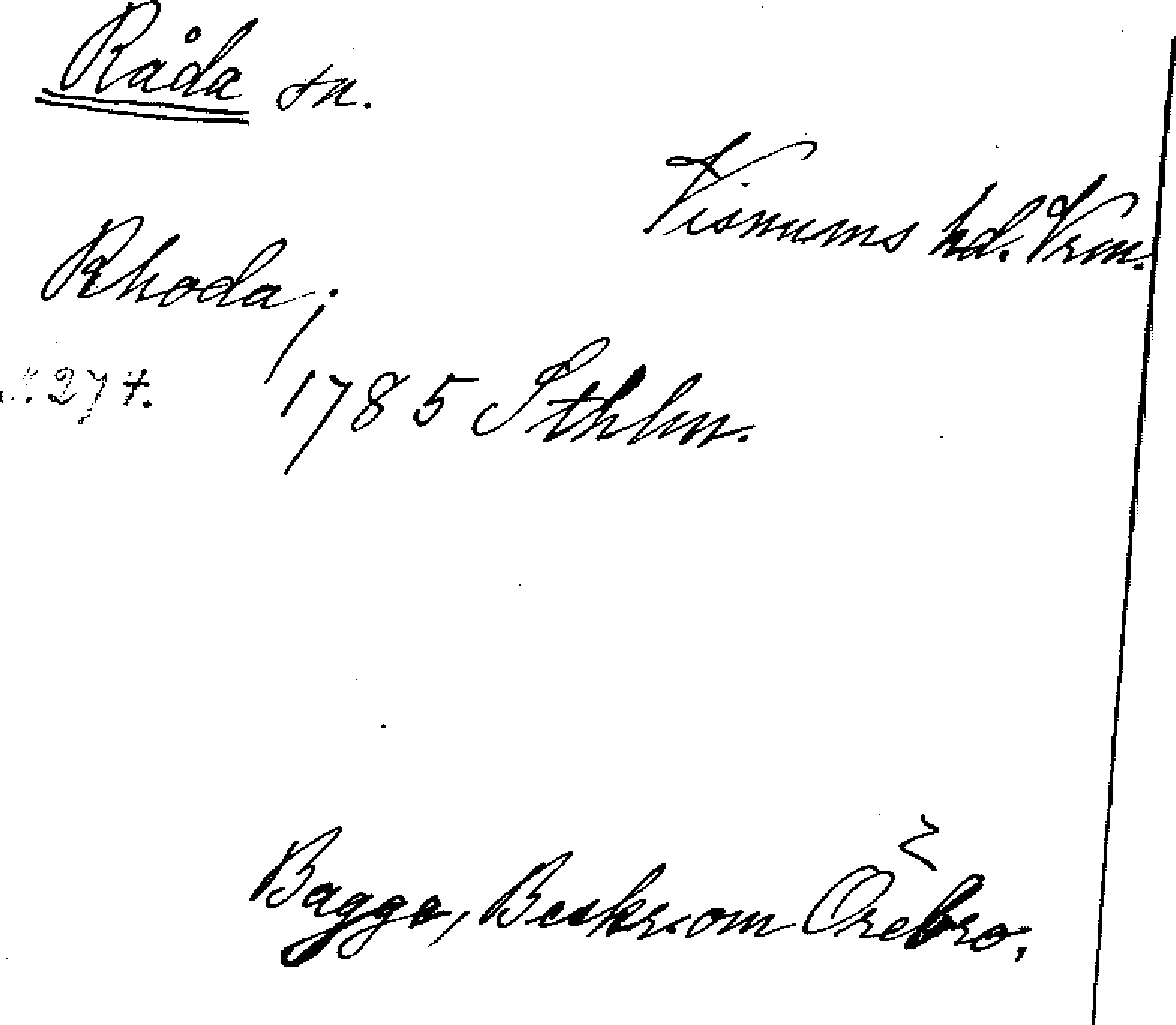 Råda sn.
Visnums hd. Vrm.
Rhoda;
s. 274. 1785 Sthlm.
Bagge, Beskr. om Örebro;